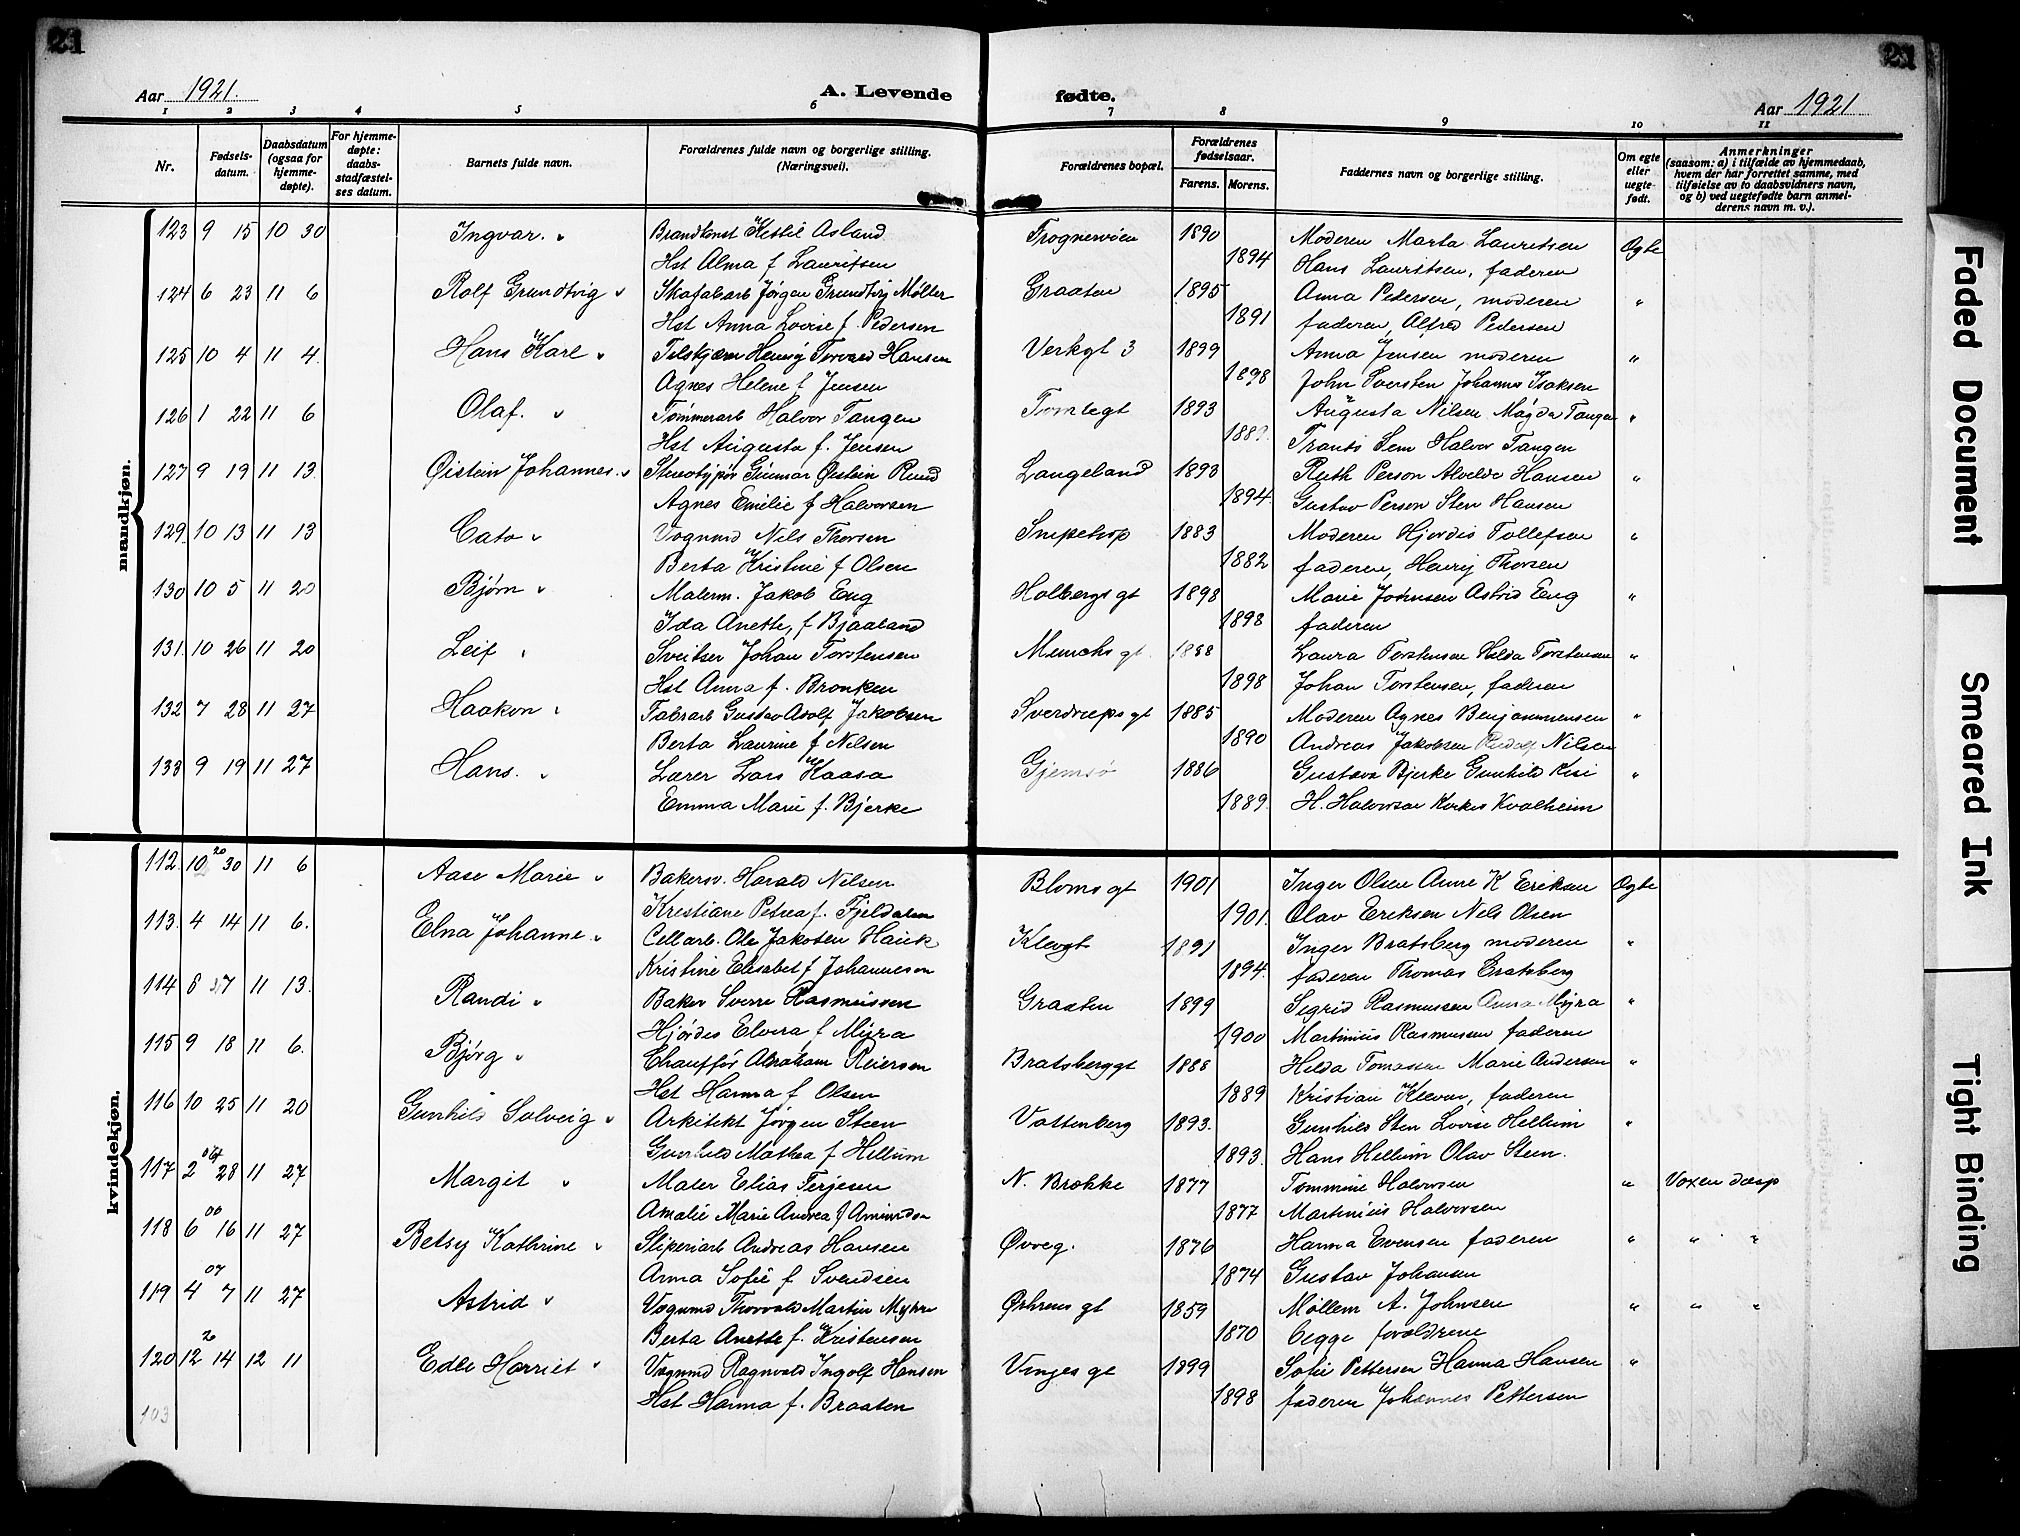 21
21
Aar 1921.
A. Levende
fødte.
Aar 1921
1 2 3 4 5 6 7 8 9 10 11
Nr.
Fødsels-
datum.
Daabsdatum
(ogsaa for
hjemme-
døpte).
For hjemme-
døpte:
daabs-
stadfæstel-
ses datum.
Barnets fulde navn.
Forældrenes fulde navn og borgerlige stilling.
(Næringsvei).
Forældrenes bopæl.
Forældrenes
fødselsaar.
Farens. Morens.
Faddernes navn og borgerlige stilling.
Om egte
eller
uegte-
født.
Anmerkninger
(saasom: a) i tilfælde av hjemmedaab,
hvem der har forrettet samme, med
tilføielse av to daabsvidners navn,
og b) ved uegtefødte barn anmel-
derens navn m. v.).
mandkjøn.
123 9 15 10 30 Ingvar. " Brandkonst Kettil Asland Frognerveien 1890 Moderen Marta Lauritsen Egte
Hst Alma f Lauritsen 1894 Hans Lauritsen, faderen
124 6 23 11 6 Rolf Grundtvig " Skofabarb Jørgen Grundtvig Møller Graaten 1895 Anna Pedersen, moderen "
Hst Anna Lovise f. Pedersen 1891 faderen, Alfred Pedersen
125 10 4 11 4. Hans Karl " Henry Torvald Hansen Verkgt 3 1899 Anna Jensen moderen "
Agnes Helene f Jensen 1898 John Sversten Johanna Isaksen
126 1 22 11 6 Olaf. " Tømmerarb Halvor Tangen Tomtegt 1893 Augusta Nilsen Magda Tangen "
Hst Augusta f. Jensen Frants Sem Halvor Tangen
127 9 19 11 13. Øistein Johannes. " Stereotypør Gunnar Øistein Rund Langeland 1893 Ruth Person Alvelde Hansen "
Agnes Emilie f Halvorsen 1894 Gustav Person Sten Hansen
129. 10 13 11 13 Cato " Vognmd Nils Thorsen Snipetorp 1883 Moderen Hjørdis Tollefsen "
Berta Kristine f Olsen 1882 faderen, Henry Thorsen
130 10 5 11 20 Bjørn " Malerm. Jakob Eng Holbergs gt 1898 Marie Johnsen Astrid Eng "
Ida Anette, f Bjaaland 1898 faderen
131. 10 26 11 20 Leif " Sveitser Johan Torstensen Munchs gt. 1888 Laura Torstensen Hilda Torstensen "
Hst Anna f. Bronken 1898 Johan Torstensen, faderen
132 7 28 11 27 Haakon " Fabrarb Gustav Adolf Jakobsen Sverdrups gt 1885 Moderen Agnes Benjaminsen "
Berta Laurine f Nilsen 1890 Andreas Jakobsen Rudolf Nilsen
133 9 19 11 27 Hans. " Lærer Lars Kaasa Gjemsø 1886 Gustava Bjerke Gunhild Kise "
Emma Marie f. Bjerke 1889. H. Halvorsen Kvalheim
kvindekjøn.
112. 10 20 30 11 6 Aase Marie " Bakersv. Harald Nilsen Bloms gt 1901 Inger Olsen Anne K Eriksen Egte
Kristiane Petrea f. Fjeldalen 1901. Olav Eriksen Nels Olsen
113. 4 14 11 6. Elna Johanne " Cellarb. Ole Jakobsen Hauk Klevgt 1891 Inger Bratsberg moderen "
Kristine Elisabet f Johannesen 1894. faderen Thomas Bratsberg
114 8 27 11 13. Randi " Baker Sverre Rasmussen Graaten 1899 Sigrid Rasmussen Anna Myra "
Hjørdis Elvira f Myra 1900 Martinius Rasmussen faderen
115 9 18 11 6. Bjørg " Chauffør Abraham Reiersen Bratsberggt 1888 Hilda Tomassen Marie Andersen "
Hst Hanna f Olsen 1889 Kristian Klevar, faderen
116 10 25 11 20 Gunhild Solveig " Arkitekt Jørgen Steen Vattenberg 1893. Gunhild Sten Lovise Hellum "
Gunhild Mathea f Hellum 1893. Hans Hellum Olav Steen.
117 2 04 28 11 27 Margit " Maler Elias Terjesen N. Brekke 1877 Tommine Halvorsen " Voxen daap
Amalie Marie Andrea f Amundsen 1877 Martinius Halvorsen
118 6 00 16 11 27 Betsy Kathrine " Sliperiarb Andreas Hansen Øvreg. 1876 Hanna Evensen faderen " " "
Anna Sofie f Svendsen 1874 Gustav Johansen
119 4 07 7 11 27 Astrid " Vognmd Thorvald Martin Myhre Ørhrens gt 1859 Møllem A. Johnsen " " "
Berta Anette f. Kristensen 1870 begge forældrene
120 12 20 14 12 11 Edle Harriet " Vognmd Ragnvald Ingolf Hansen Vinjes gt 1899 Sofie Pettersen Hanna Hansen "
Hst Hanna f. Braaten 1898 faderen Johannes Pettersen
103
Faded Document
Smeared Ink
Tight Binding